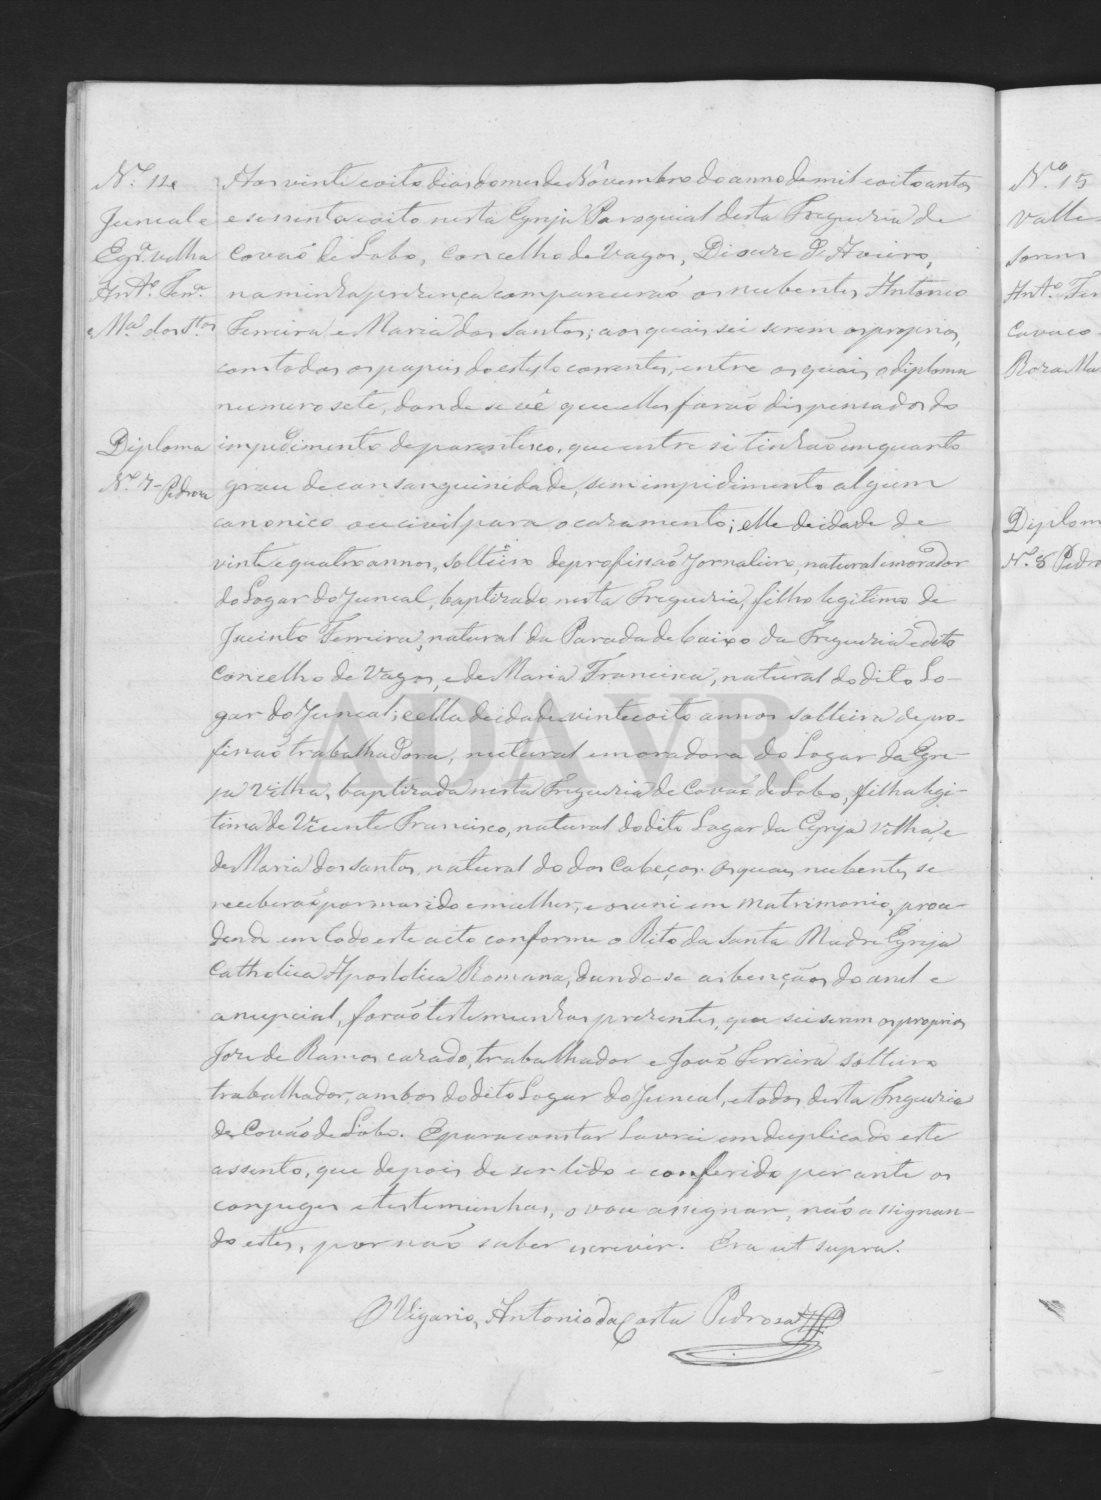 N.º 14
Juncal e
Egr.ª velha
Ant.º Ferr.ª
e M.ª dos St.os
Diploma
N.º 7 - Pedrosa
Aos vinte e oito dias do mes de Novembro do anno de mil e oito centos
e sessenta e oito nesta Egreja Paroquial desta Freguezia de
Covaõ de Lobo, Concelho de Vagos, Diocese de Aveiro,
na minha prezença compareceraõ os nubentes Antonio
Ferreira e Maria dos Santos; aos quaes sei serem os proprios,
com todos os papeis do estylo correntes, entre os quais o diploma
numero sete, donde se vê que elles foraõ dispensados do
impedimento de parentesco, que entre si tinhaõ em quarto
grau de consanguinidade, sem impidimento algum
canonico ou civil para o casamento; elle de idade de
vinte e quatro annos, solteiro de profissaõ Jornaleiro, natural e morador
do Logar do Juncal, baptizado nesta Freguezia, filho legitimo de
Jacinto Ferreira, natural da Parada de baixo da Freguezia e dito
Concelho de Vagos, e de Maria Francisca, natural do dito Lo-
gar do Juncal; e ella de idade vinte e oito annos solteira de pro-
fissaõ trabalhadora, natural e moradora do Logar da Egre-
ja Velha, baptizada nesta Freguezia de Covaõ de Lobo, filha legi-
tima de Vicente Francisco, natural do dito Logar da Egreja Velha, e
de Maria dos Santos, natural do dos Cabeços. Os quaes nubentes se
receberaõ por marido e mulher, e os uni em Matrimonio, proce-
dendo em todo este acto conforme o Rito da Santa Madre Egreja
Catholica Apostolica Romana, dando-se as bençãos do anel e
a nupcial, foraõ testemunhas prezentes, que sei serem os proprios
José de Ramos casado, trabalhador e Joaõ Ferreira solteiro
trabalhador, ambos do dito Logar do Juncal, e todos desta Freguezia
de Covão de Lobo. E para constar lavrei em duplicado este
assento, que depois de ser lido e conferido perante os
conjuges e testemunhas, o vou assignar, não assignan-
do estes, por naõ saber escrever. Era ut supra.
O Vigario, Antonio da Costa Pedrosa
ADAVR
N.º 15
Valle
Ant.º Fer
Cavaco
Roza Ma
Diplom
N.º 8 Pedro